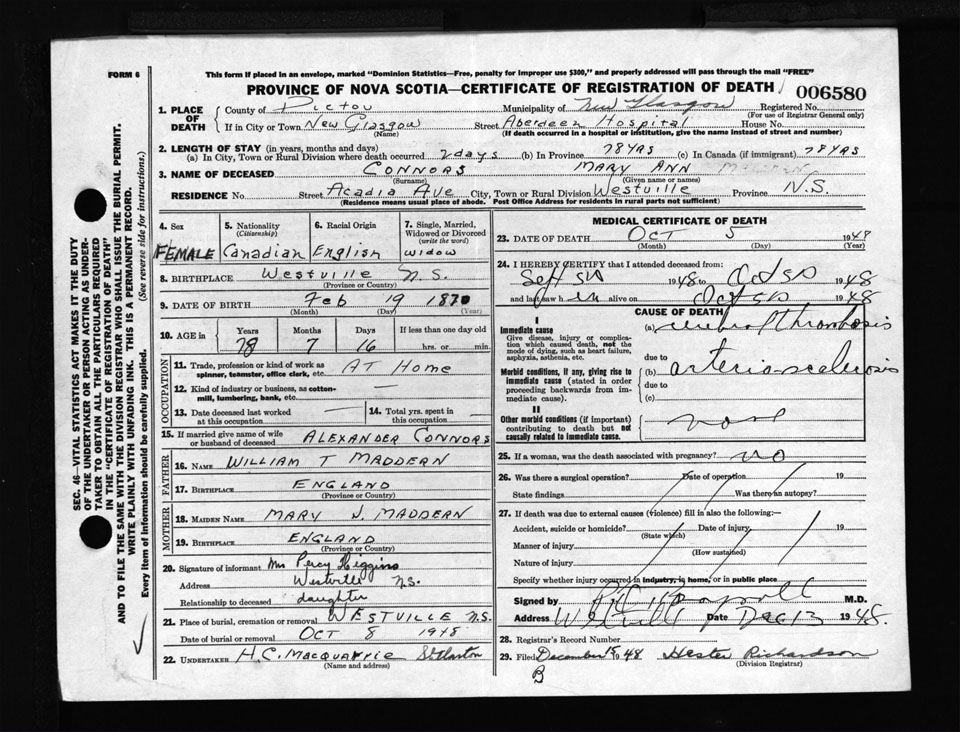 FORM 6
This form if placed in an envelope, marked "Dominion Statistics—Free, penalty for improper use $300," and properly addressed will pass through the mail "FREE"
PROVINCE OF NOVA SCOTIA—CERTIFICATE OF REGISTRATION OF DEATH
006580
1. PLACE OF DEATH
County of Pictou Municipality of New Glasgow Registered No.
(For use of Registrar General only)
If in City or Town New Glasgow Street Aberdeen Hospital House No.
(Name) (If death occurred in a hospital or institution, give the name instead of street and number)
2. LENGTH OF STAY (in years, months and days)
(a) In City, Town or Rural Division where death occurred 2 days (b) In Province 78 YRS (c) In Canada (if immigrant) 78 YRS
3. NAME OF DECEASED CONNORS MARY ANN
(Surname) (Given name or names)
RESIDENCE No. Street Acadia Ave City, Town or Rural Division Westville Province N.S.
(Residence means usual place of abode. Post Office Address for residents in rural parts not sufficient)
SEC. 46—VITAL STATISTICS ACT MAKES IT THE DUTY
OF THE UNDERTAKER OR PERSON ACTING AS UNDER-
TAKER TO OBTAIN ALL THE PARTICULARS REQUIRED
IN THE "CERTIFICATE OF REGISTRATION OF DEATH"
AND TO FILE THE SAME WITH THE DIVISION REGISTRAR WHO SHALL ISSUE THE BURIAL PERMIT.
WRITE PLAINLY WITH UNFADING INK. THIS IS A PERMANENT RECORD.
Every item of information should be carefully supplied. (See reverse side for instructions.)
4. Sex
FEMALE
5. Nationality
(Citizenship)
Canadian
6. Racial Origin
English
7. Single, Married, Widowed or Divorced
(write the word)
WIDOW
8. BIRTHPLACE Westville N.S.
(Province or Country)
9. DATE OF BIRTH Feb 19 1870
(Month) (Day) (Year)
10. AGE in
Years Months Days If less than one day old
78 7 16 hrs. or min.
OCCUPATION
11. Trade, profession or kind of work as AT Home
spinner, teamster, office clerk, etc.
12. Kind of industry or business, as cotton- —
mill, lumbering, bank, etc.
13. Date deceased last worked —
at this occupation
14. Total yrs. spent in —
this occupation
15. If married give name of wife
or husband of deceased ALEXANDER CONNORS
FATHER
16. NAME WILLIAM T MADDERN
17. BIRTHPLACE ENGLAND
(Province or Country)
MOTHER
18. MAIDEN NAME MARY J. MADDERN
19. BIRTHPLACE ENGLAND
(Province or Country)
20. Signature of informant Mrs Percy Higgins
Address Westville N.S.
Relationship to deceased daughter
21. Place of burial, cremation or removal WESTVILLE N.S.
Date of burial or removal OCT 8 1948
22. UNDERTAKER H.C. MACQUARRIE Stellarton
(Name and address)
MEDICAL CERTIFICATE OF DEATH
23. DATE OF DEATH OCT 5 1948
(Month) (Day) (Year)
24. I HEREBY CERTIFY that I attended deceased from
1948 to 1948
and last saw h er alive on 1948
CAUSE OF DEATH
I
Immediate cause
Give disease, injury or complica-
tion which caused death, not the
mode of dying, such as heart failure,
asphyxia, asthenia, etc.
(a) cerebral thrombosis
due to
Morbid conditions, if any, giving rise to
immediate cause (stated in order
proceeding backwards from im-
mediate cause).
(b) arterio-sclerosis
due to
(c)
II
Other morbid conditions (if important)
contributing to death but not
causally related to immediate cause.
none
25. If a woman, was the death associated with pregnancy? no
26. Was there a surgical operation? Date of operation 19
State findings Was there an autopsy?
27. If death was due to external causes (violence) fill in also the following:—
Accident, suicide or homicide? Date of injury 19
(State which)
Manner of injury
(How sustained)
Nature of injury
Specify whether injury occurred in industry, in home, or in public place
Signed by M.D.
Address Westville Date Dec 13 1948.
28. Registrar's Record Number
29. Filed December 15 1948 Hester Richardson
(Division Registrar)
B